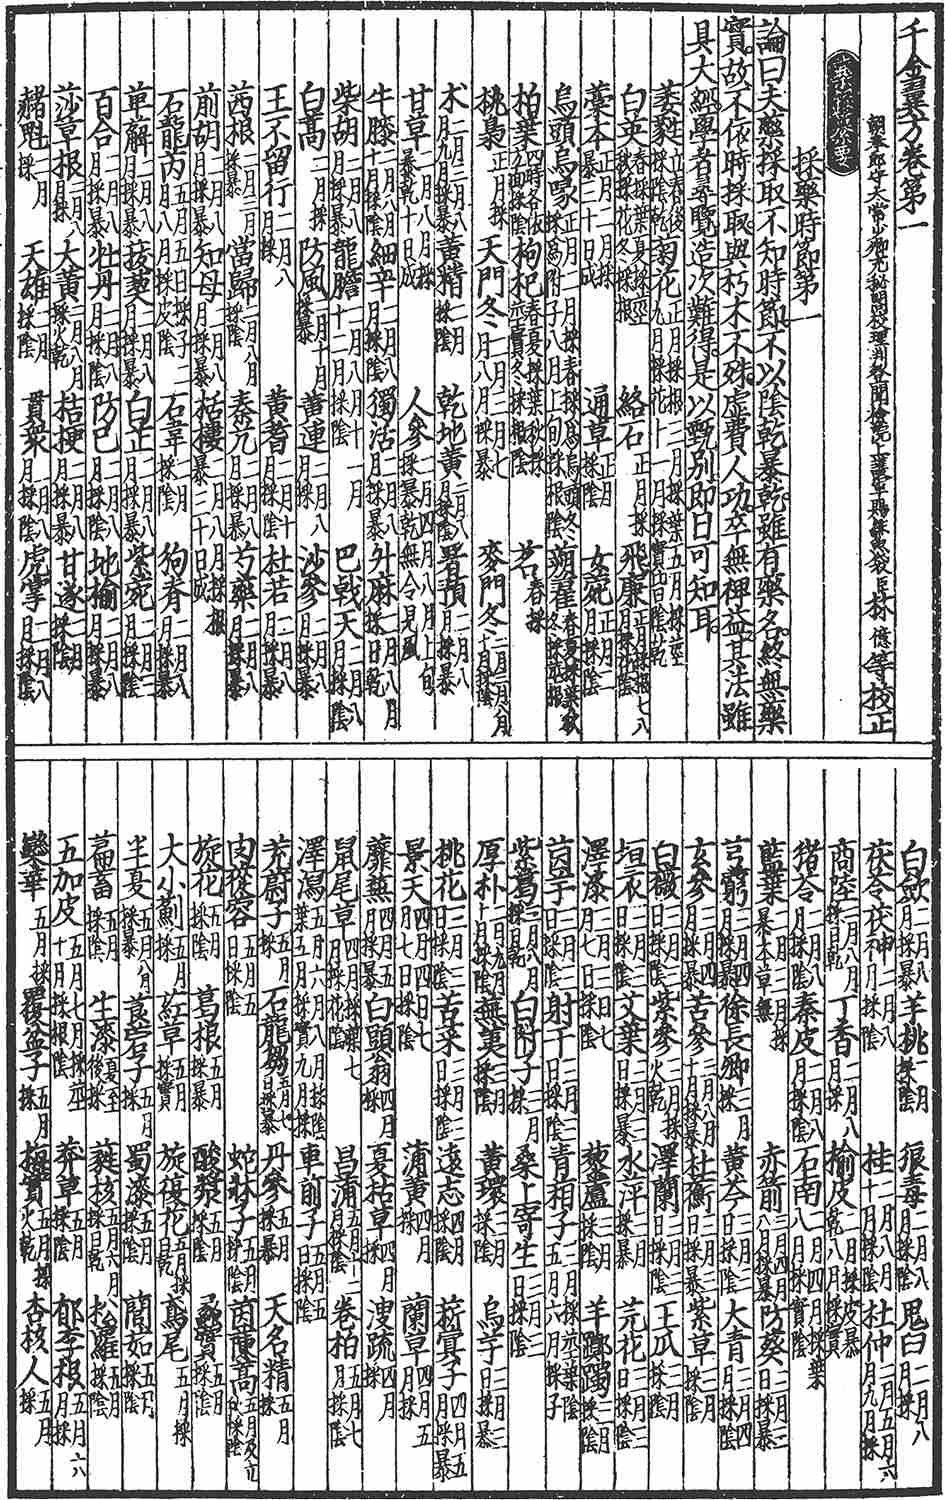 千金翼方卷第一
朝奉郎守太常少卿充秘閣校理判登聞檢院上護軍賜緋魚袋臣林億等校正
採藥時節第一
論曰夫藥採取不知時節不以陰乾暴乾雖有藥名終無藥
實故不依時採取與朽木不殊虛費人功卒無裨益其法雖
具大經學者尋覽造次難得是以甄別即日可知耳
萎蕤立春後採陰乾 菊花正月採根三月採葉五月採莖九月採花十一月採實皆陰乾
白英春採葉夏採莖秋採花冬採根 絡石正月採 飛廉正月採根七八月採花陰
藁本正月採暴三十日成 通草正月採陰 女菀正月二月採陰
烏頭烏喙正月二月採春採為烏頭冬採為附子八月上旬採根陰 蒴藋春夏採葉秋冬採莖根
柏葉四時各依方面採陰 枸杞春夏採葉秋採莖實冬採根陰 茗春採
桃梟正月採 天門冬二月三月七月八月採暴 麥門冬二月三月八月十月採陰
朮二月三月八月九月採暴 黃精二月採陰 乾地黃二月八月採陰 署預二月八月採暴
甘草二月八月採暴乾十日成 人參二月四月八月上旬採暴乾無令見風
牛膝二月八月十月採陰 細辛二月八月採陰 獨活二月八月採暴 升麻二月八月採日乾
柴胡二月八月採暴 龍膽二月八月十一月十二月採陰 巴戟天二月八月採陰
白蒿二月採 防風二月十月採暴 黃連二月八月採 沙參二月八月採暴
王不留行二月八月採 黃耆二月十月採陰 杜若二月八月採暴
茜根二月三月採暴 當歸二月八月採陰 秦艽二月八月採暴 芍藥二月八月採暴
前胡二月八月採暴 知母二月八月採暴 栝樓二月八月採根暴三十日成
石龍芮五月五日採子二月八月採皮陰 石韋二月採陰 狗脊二月八月採暴
萆解二月八月採暴 菝葜二月八月採暴 白芷二月八月採暴 紫菀二月三月採陰
百合二月八月採暴 牡丹二月八月採陰 防己二月八月採陰 地榆二月八月採暴
莎草根二月八月採 大黃二月八月採火乾 桔梗二月八月採暴 甘遂二月採陰
赭魁二月採 天雄二月採陰 貫眾二月八月採陰 虎掌二月八月採陰
白蘞二月八月採暴 羊桃二月採陰 狼毒二月八月採陰 鬼臼二月八月採
茯苓茯神二月八月採陰 桂二月八月十月採陰 杜仲二月五月六月九月採
商陸二月八月採日乾 丁香二月八月採 榆皮二月採皮暴乾八月採實
猪苓二月八月採陰 秦皮二月八月採陰 石南二月四月採葉八月採實陰
藍葉三月採暴本草無 赤箭三月四月八月採暴 防葵三月三日採暴
芎藭三月四月採暴 徐長卿三月採 黃芩三月三日採陰 大青三月四月採陰
玄參三月四月採暴 苦參三月八月十月採暴 杜蘅三月三日採暴 紫草三月採陰
白薇三月三日採陰 紫參三月採火乾 澤蘭三月三日採陰 王瓜三月採陰
垣衣三月三日採陰 艾葉三月三日採暴 水萍三月採暴 芫花三月三日採陰
澤漆三月三日七月七日採陰 藜蘆三月採陰 羊躑躅三月採陰
茵芋三月三日採陰 射干三月三日採陰 青葙子三月採莖葉陰五月六月採子
紫葛三月八月採日乾 白附子三月採 桑上寄生三月三日採陰
厚朴三月九月十月採陰 蕪荑三月採陰 黃環三月採陰 烏芋三月三日採暴
桃花三月三日採陰 苦菜三月三日採陰 遠志四月採陰 菥蓂子四月五月採暴
景天四月四日七月七日採陰 蒲黃四月採 蘭草四月五月採
蘼蕪四月五月採暴 白頭翁四月採 夏枯草四月採 溲疏四月採
鼠尾草四月採葉七月採花陰 昌蒲五月十二月採陰 卷柏五月七月採陰
澤瀉五月六月八月採陰葉五月採實九月採 車前子五月五日採陰
茺蔚子五月採 石龍芻五月七月採暴 丹參五月採暴 天名精五月採
肉蓯蓉五月五日採陰 蛇牀子五月採陰 茵蔯蒿五月及立秋採陰
旋花五月採陰 葛根五月採暴 酸漿五月採陰 蒺藜實
大小薊五月採 葒草五月採實 旋復花五月採日乾 鳶尾五月採
半夏五月八月採暴 莨菪子五月採 蜀漆五月採陰 䕡茹五月採陰
萹蓄五月採陰 生漆夏至後採 蕤核五月六月採日乾 松蘿五月採陰
五加皮五月七月採莖十月採根陰 莽草五月採陰 郁李根五月六月採根
欒華五月採 覆盆子五月採 梅實五月採火乾 杏核人五月採